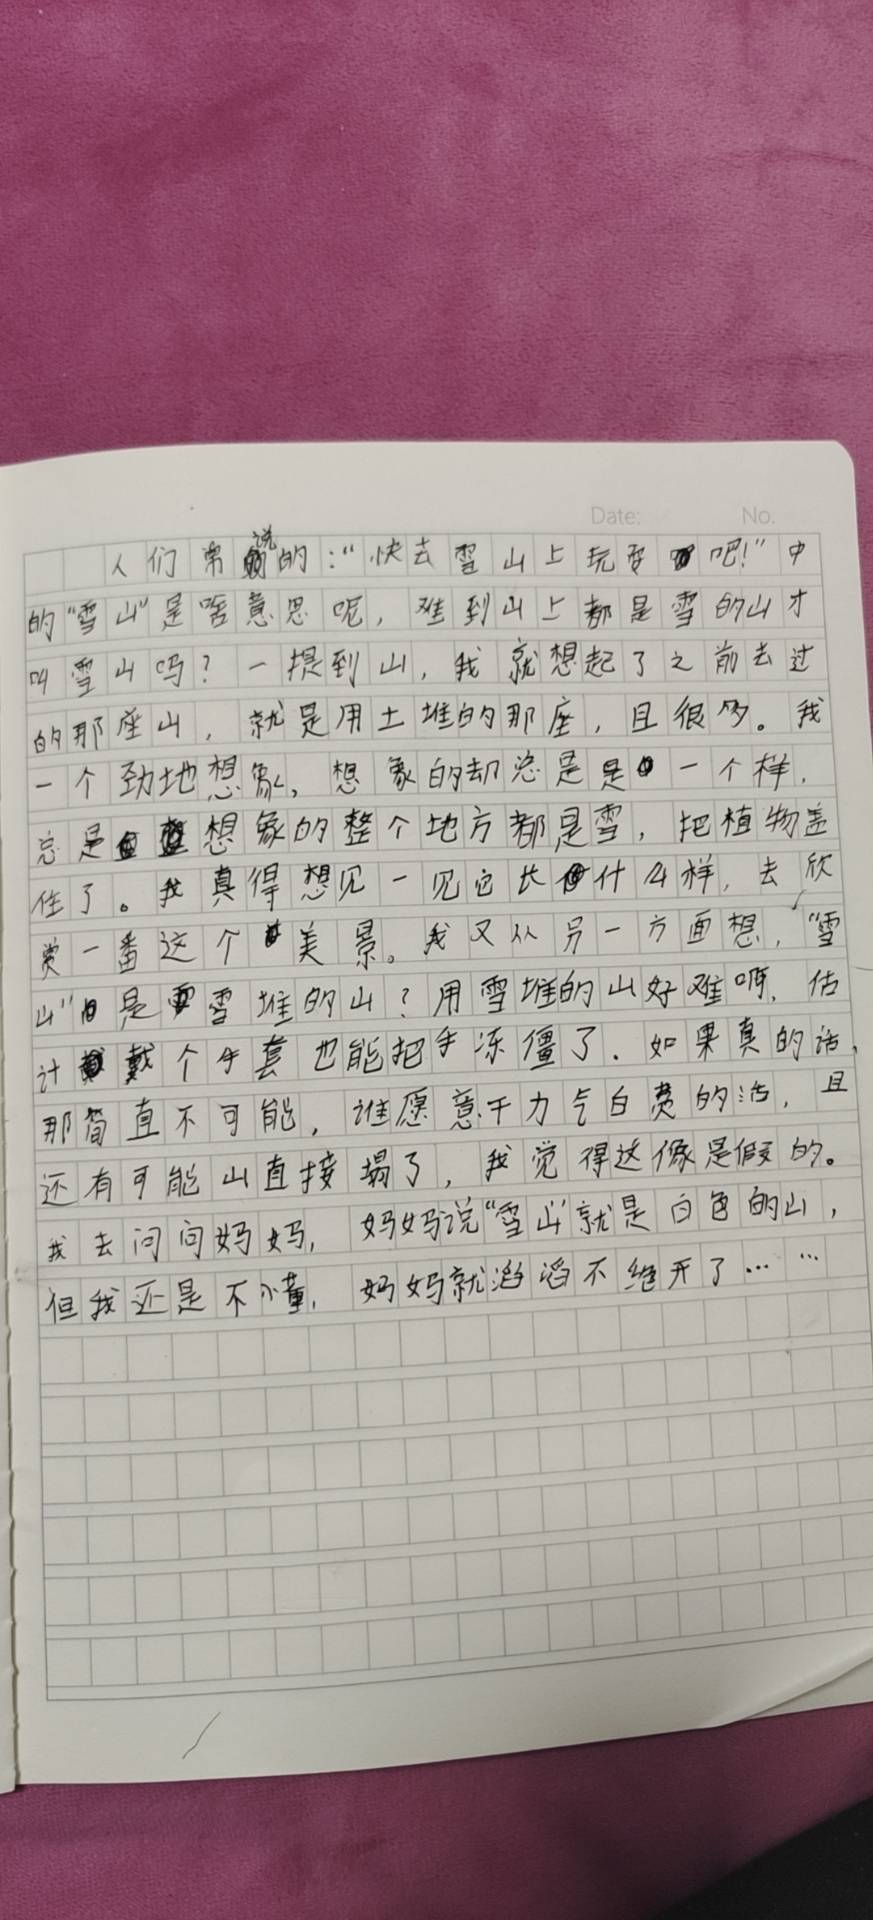 Date: No.
人们常说的:“快去雪山上玩耍吧!”中
的“雪山”是啥意思呢,难到山上都是雪的山才
叫雪山吗?一提到山,我就想起了之前去过
的那座山,就是用土堆的那座,且很多。我
一个劲地想象,想象的却总是是一个样,
总是想象的整个地方都是雪,把植物盖
住了。我真得想见一见它长什么样,去欣
赏一番这个美景。我又从另一方面想,“雪
山”是雪堆的山?用雪堆的山好难啊,估
计戴个手套也能把手冻僵了.如果真的话,
那简直不可能,谁愿意干力气白费的活,且
还有可能山直接塌了,我觉得这像是假的。
我去问问妈妈,妈妈说“雪山”就是白色的山,
但我还是不懂,妈妈就滔滔不绝开了……